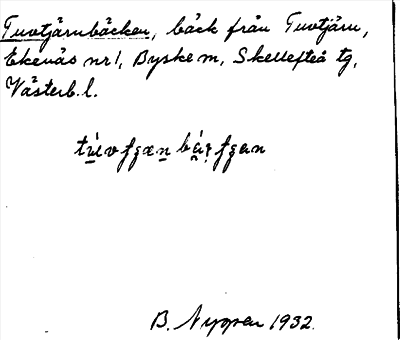 Tuvtjärnbäcken, bäck från Tuvtjärn,
Ekenäs nr 1, Byske sn, Skellefteå tg,
Västerb. l.
B. Nygren 1932.